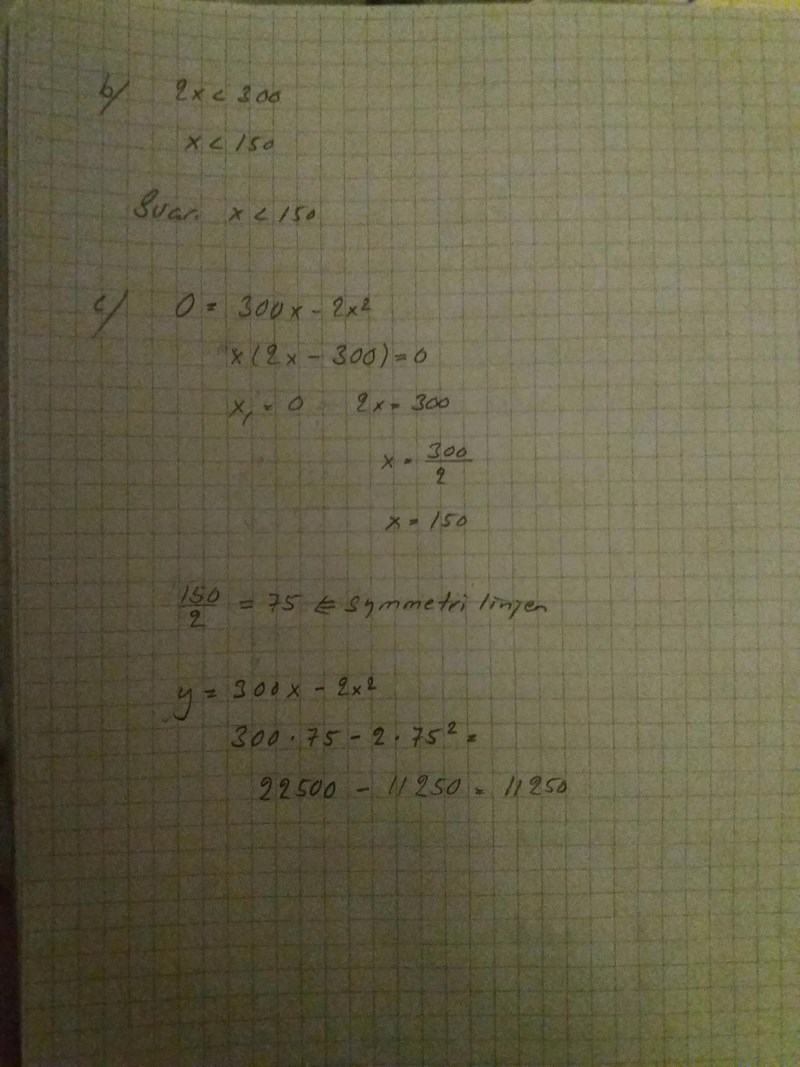 b/ 2x < 300
x < 150
Svar. x < 150
c/ 0 = 300x - 2x²
x(2x - 300) = 0
x₁ = 0 2x = 300
x = 300/2
x = 150
150/2 = 75 ⇐ symmetri linjen
y = 300x - 2x²
300 · 75 - 2 · 75² =
22500 - 11250 = 11250